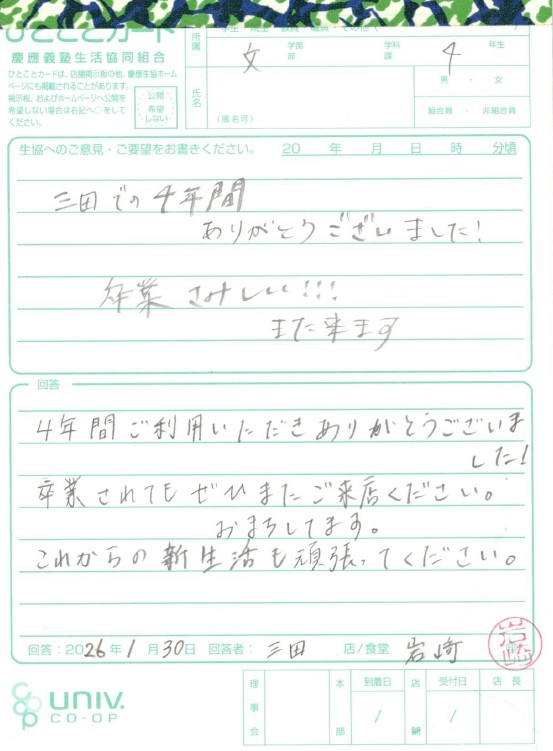 ひとことカード
慶應義塾生活協同組合
ひとことカードは、店舗掲示板の他、慶應生協ホーム
ページにも掲載されることがあります。
掲示板、およびホームページへ公開を
希望しない場合は右記へ○をして
ください。
公開
希望
しない
所属
文 学部 学科 4 年生
部 課
氏名
(匿名可)
男 ・ 女
組合員 ・ 非組合員
生協へのご意見・ご要望をお書きください。 20 年 月 日 時 分頃
三田での4年間
ありがとうございました!
卒業 さみしい!!!
また来ます
回答
4年間ご利用いただきありがとうございま
した!
卒業されてもぜひまたご来店ください。
おまちしてます。
これからの新生活も頑張ってください。
回答:2026年1月30日 回答者: 三田 店/食堂 岩崎
岩崎
UNIV.
CO-OP
理事会
本部
到着日
/
店舗
受付日
/
店長